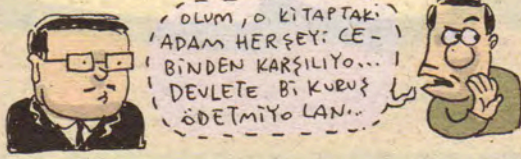 OLUM, O KİTAPTAKİ
ADAM HERŞEYİ CE-
BİNDEN KARŞILIYO...
DEVLETE Bİ KURUŞ
ÖDETMİYO LAN...